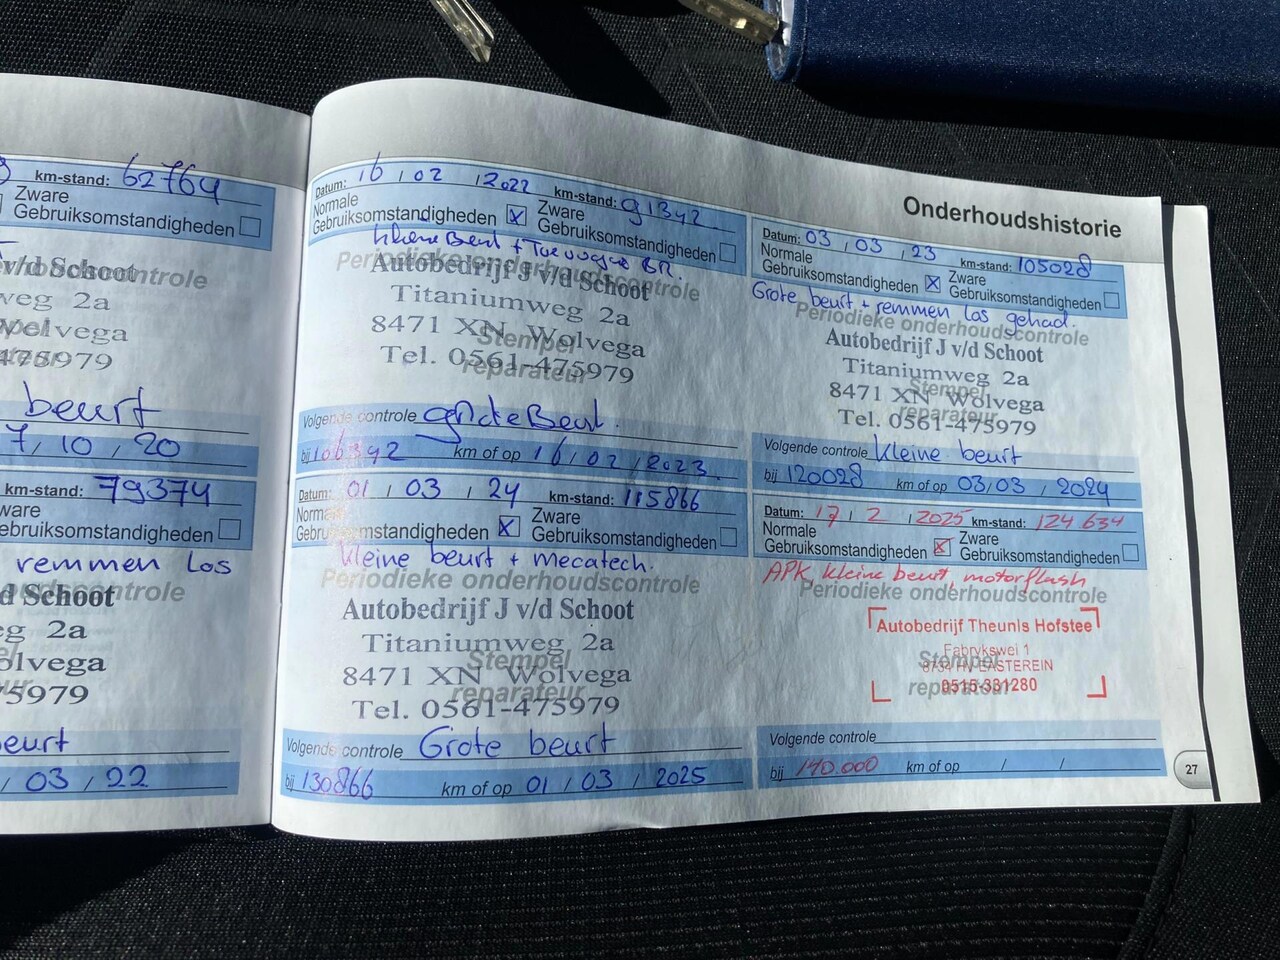 km-stand: 62764
Zware
Gebruiksomstandigheden
Periodieke onderhoudscontrole
v/d Schoot
weg 2a
Wolvega
475979
beurt
7 / 10 / 20
km-stand: 79374
Zware
Gebruiksomstandigheden
remmen los
d Schoot
eg 2a
olvega
5979
beurt
/ 03 / 22
Onderhoudshistorie
Datum: 16 / 02 / 2022 km-stand: 91392
Normale
Gebruiksomstandigheden
Zware
Gebruiksomstandigheden
kleine Beurt +
Periodieke onderhoudscontrole
Autobedrijf J v/d Schoot
Titaniumweg 2a
8471 XN Wolvega
Stempel
Tel. 0561-475979
reparateur
Volgende controle grote Beurt.
bij 106392 km of op 16 / 02 / 2023.
Datum: 03 / 03 / 23 km-stand: 105028
Normale
Gebruiksomstandigheden
Zware
Gebruiksomstandigheden
Grote beurt + remmen los gehad.
Periodieke onderhoudscontrole
Autobedrijf J v/d Schoot
Titaniumweg 2a
Stempel
8471 XN Wolvega
reparateur
Tel. 0561-475979
Volgende controle kleine beurt
bij 120028 km of op 03/03 / 2024
Datum: 01 / 03 / 24 km-stand: 115866
Normale
Gebruiksomstandigheden
Zware
Gebruiksomstandigheden
kleine beurt + mecatech.
Periodieke onderhoudscontrole
Autobedrijf J v/d Schoot
Titaniumweg 2a
Stempel
8471 XN Wolvega
reparateur
Tel. 0561-475979
Volgende controle Grote beurt
bij 130866 km of op 01 / 03 / 2025
Datum: 17 / 2 / 2025 km-stand: 124 634
Normale
Gebruiksomstandigheden
Zware
Gebruiksomstandigheden
APK kleine beurt, motorflush
Periodieke onderhoudscontrole
Autobedrijf Theunis Hofstee
Fabrykswei 1
Stempel
8734 HV EASTEREIN
reparateur
0515-331280
Volgende controle
bij 140.000 km of op / /
27